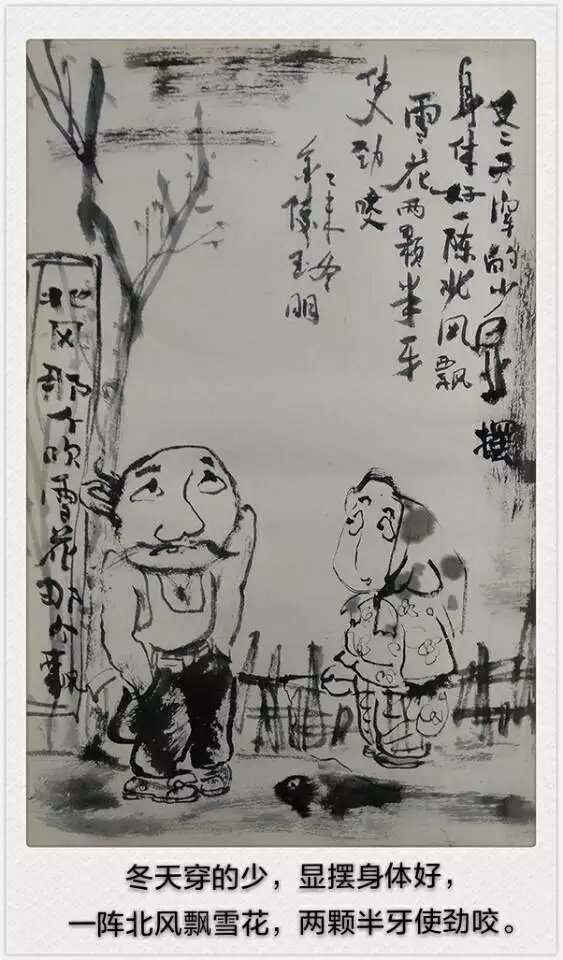 冬天穿的少显摆
身体好一阵北风飘
雪花两颗半牙
使劲咬
乙未冬
陈玉明
北风那个吹雪花那个飘
冬天穿的少，显摆身体好，
一阵北风飘雪花，两颗半牙使劲咬。